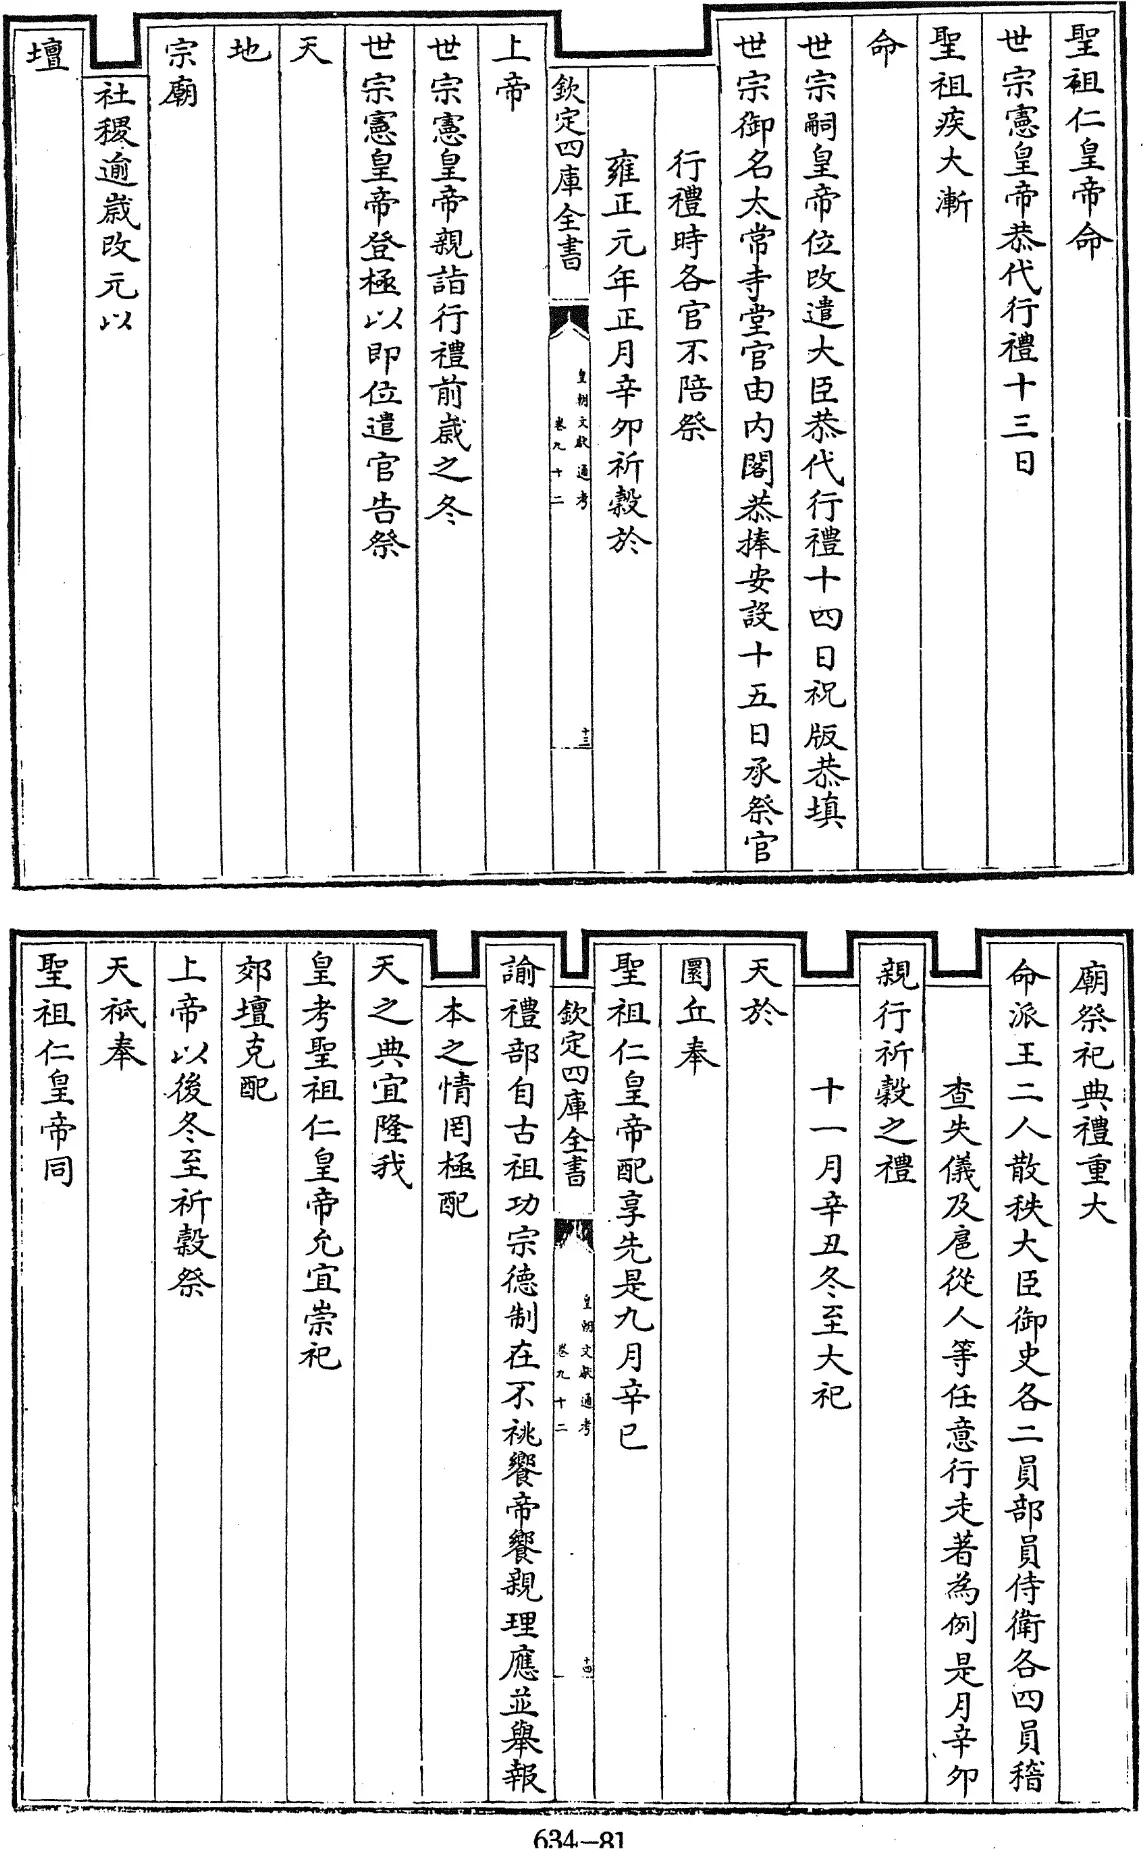 聖祖仁皇帝命
世宗憲皇帝恭代行禮十三日
聖祖疾大漸
命
世宗嗣皇帝位改遣大臣恭代行禮十四日祝版恭填
世宗御名太常寺堂官由内閣恭捧安設十五日承祭官
行禮時各官不陪祭
雍正元年正月辛卯祈穀於
欽定四庫全書
皇朝文獻通考
卷九十二
十三
上帝
世宗憲皇帝親詣行禮前歲之冬
世宗憲皇帝登極以即位遣官告祭
天
地
宗廟
社稷逾歲改元以
壇
廟祭祀典禮重大
命派王二人散秩大臣御史各二員部員侍衛各四員稽
查失儀及扈從人等任意行走著為例是月辛卯
親行祈穀之禮
十一月辛丑冬至大祀
天於
圜丘奉
聖祖仁皇帝配享先是九月辛巳
欽定四庫全書
皇朝文獻通考
卷九十二
十四
諭禮部自古祖功宗德制在不祧饗帝饗親理應並舉報
本之情罔極配
天之典宜隆我
皇考聖祖仁皇帝允宜崇祀
郊壇克配
上帝以後冬至祈穀祭
天祇奉
聖祖仁皇帝同
634-81